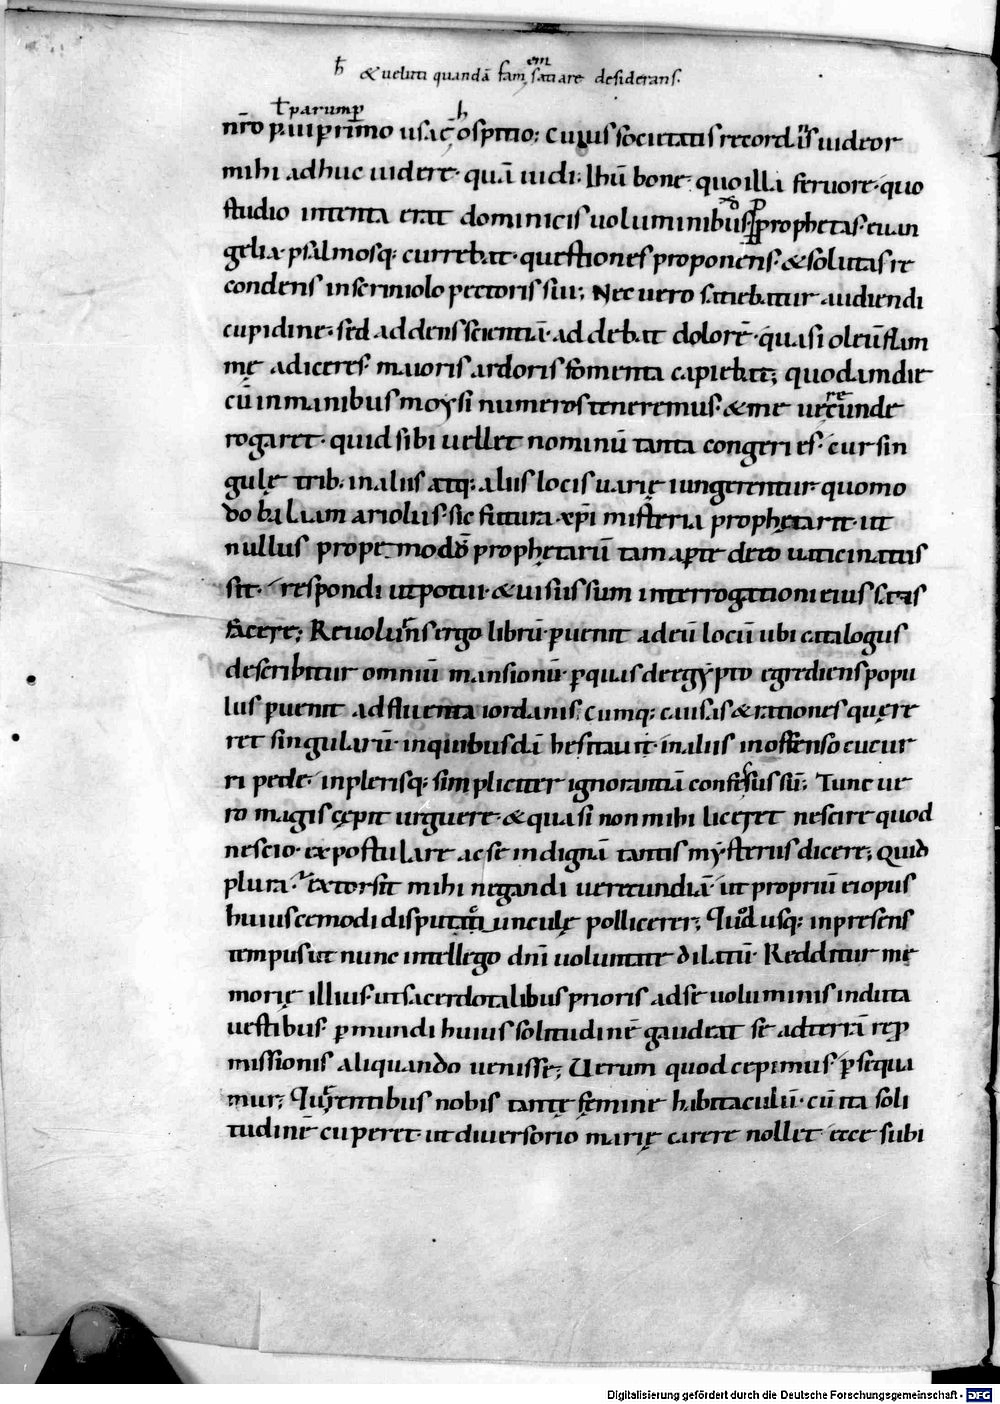 h̄ &ueluti quandā famem satiare desiderans.
ł parump̄ h
nr̄o paruip̄rimo usaę ospitio; Cuius societatis recordans uideor
mihi adhuc uidere· quā uidi; Ihū bone· quo illa feruore· quo
studio intenta erat dominicis uoluminibus; p prophetas· euan
gelia· psalmosq; currebat· questiones proponens· & solutas re
condens in scriniolo pectoris sui; Nec uero satiebatur audiendi
cupidine· sed addens scientiā· addebat dolorē· quasi oleū flam
mę adiceres· maioris ardoris fomenta capiebat; quodam die
cū in manibus moysi numeros teneremus· & me uerecunde
rogaret· quid sibi uellet nominū tanta congeries· cur sin
gulę trib; in aliis atq; aliis locis uarię iungerentur· quomo
do baliam ariolus· sic futura xp̄i misteria prophętarit· ut
nullus prope modō prophętarū tam ap̄te de eo uaticinatus
sit· respondi ut potui· & uisus sum interrogationi eius satis
facere; Reuoluens ergo librū puenit ad eū locū ubi catalogus
describitur omniū mansionū· p quas de egypto egrediens popu
lus puenit ad fluenta iordanis; Cumq; causas & rationes quęre
ret singularū· in quibusdā hesitauit· in aliis inoffenso cucur
ri pede· in plerisq; simpliciter ignorantiā confessus sū; Tunc ue
ro magis cępit urguere· & quasi non mihi liceret nescire quod
nescio· expostulare ac se indignā tantis mysteriis dicere; Quid
plura· extorsit mihi negandi uerecundiā· ut propriū ei opus
huiuscemodi disputatiunculę pollicerer; Quod usq; in presens
tempus ut nunc intellego dn̄i uoluntate dilatū· Redditur me
morię illius· ut sacerdotalibus prioris ad se uoluminis induta
uestibus· p mundi huius solitudinē gaudeat se ad terrā rep̄
missionis aliquando uenisse; Uerum quod cepimus· psequa
mur; Querentibus nobis tantę femine habitaculū· cū ita soli
tudinē cuperet· ut diuersorio marię carere nollet· ecce subi
Digitalisierung gefördert durch die Deutsche Forschungsgemeinschaft - DFG